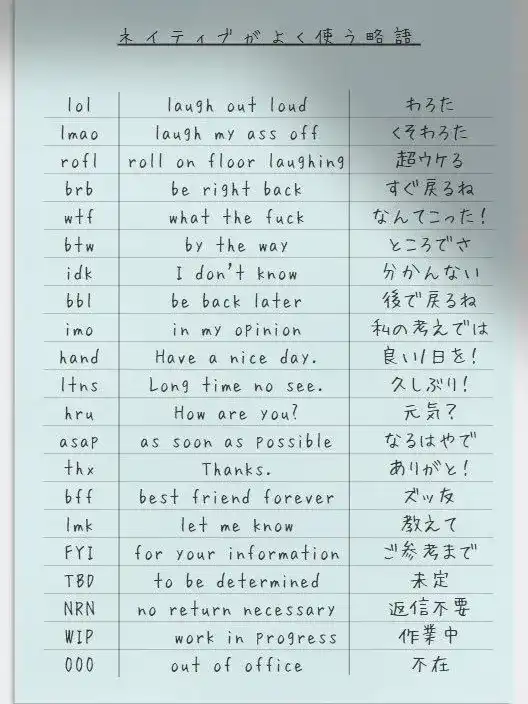 ネイティブがよく使う略語
lol laugh out loud わろた
lmao laugh my ass off くそわろた
rofl roll on floor laughing 超ウケる
brb be right back すぐ戻るね
wtf what the fuck なんてこった!
btw by the way ところでさ
idk I don't know 分かんない
bbl be back later 後で戻るね
imo in my opinion 私の考えでは
hand Have a nice day. 良い1日を!
ltns Long time no see. 久しぶり!
hru How are you? 元気?
asap as soon as possible なるはやで
thx Thanks. ありがと!
bff best friend forever ズッ友
lmk let me know 教えて
FYI for your information ご参考まで
TBD to be determined 未定
NRN no return necessary 返信不要
WIP work in progress 作業中
OOO out of office 不在